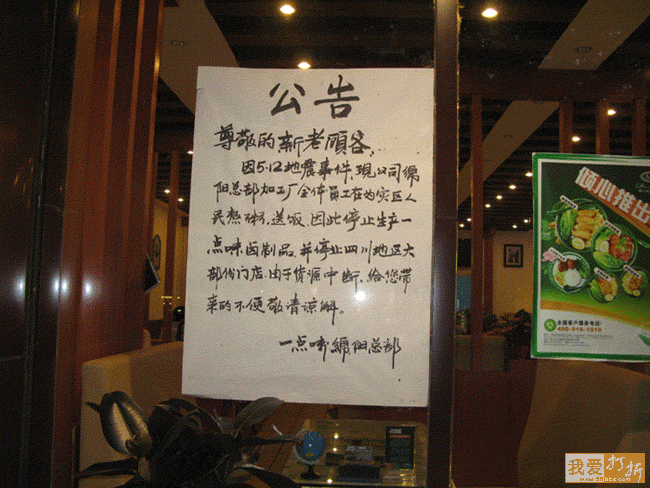 公告
尊敬的新老顾客:
因5.12地震事件,现公司绵
阳总部加工厂全体员工在为灾区人
民熬粥、送饭,因此停止生产一
点味卤制品,并停止四川地区大
部份门店,由于货源中断,给您带
来的不便敬请谅解。
一点味绵阳总部
倾心推出
全国客户服务电话:
400-818-1818
我爱打折